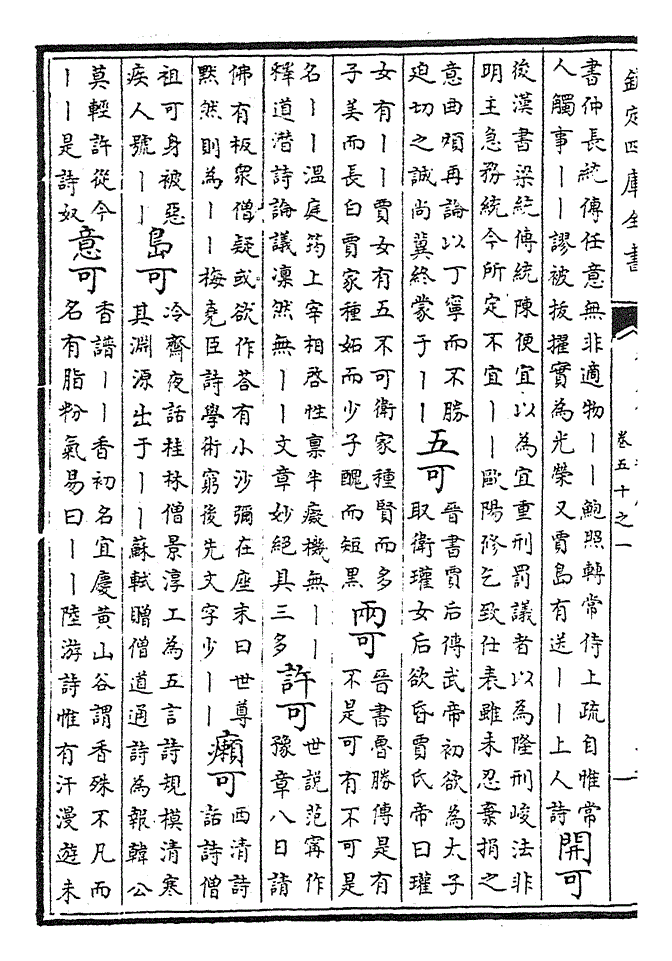 欽定四庫全書
卷五十之一
書仲長統傳任意無非適物丨丨鮑照轉常侍上疏自惟常
人觸事丨丨謬被拔擢實為光榮又賈島有送丨丨上人詩
開可
後漢書梁統傳統陳便宜以為宜重刑罰議者以為隆刑峻法非
明主急務統今所定不宜丨丨歐陽修乞致仕表雖未忍棄捐之
意曲頗再論以丁寧而不勝
迫切之誠尚冀終蒙于丨丨
五可
晉書賈后傳武帝初欲為太子
取衛瓘女后欲昏賈氏帝曰瓘
女有丨丨賈女有五不可衛家種賢而多
子美而長白賈家種妬而少子醜而短黑
兩可
晉書魯勝傳是有
不是可有不可是
名丨丨溫庭筠上宰相啓性禀半癡機無丨丨
釋道潛詩論議凜然無丨丨文章妙絕具三多
許可
世説范甯作
豫章八日請
佛有板衆僧疑或欲作荅有小沙彌在座末曰世尊
默然則為丨丨梅堯臣詩學術窮後先文字少丨丨
癩可
西清詩
話詩僧
祖可身被惡
疾人號丨丨
島可
冷齋夜話桂林僧景淳工為五言詩規模清寒
其淵源出于丨丨蘇軾贈僧道通詩為報韓公
莫輕許從今
丨丨是詩奴
意可
香譜丨丨香初名宜慶黄山谷謂香殊不凡而
名有脂粉氣易曰丨丨陸游詩惟有汗漫遊未